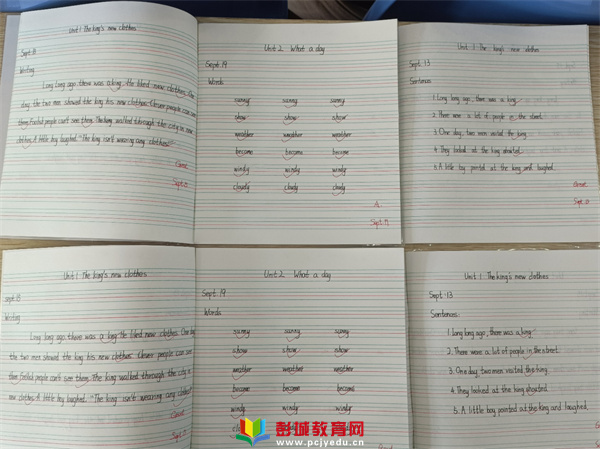 Unit 1 The king's new clothes
Sept.
Writing
Long long ago, there was a king. He liked new clothes. One
day, the two men showed the king his new clothes. Clever people can see
them. Foolish people can't see them. The king walked through the city in his
new clothes. A little boy laughed. "The king isn't wearing any clothes!"
Great
Sept.
Unit 2 What a day
Sept. 19
Words
sunny sunny sunny
show show show
weather weather weather
become become become
windy windy windy
cloudy cloudy cloudy
A
Sept.
Unit 1 The king's new clothes
Sept. 13
Sentences
1. Long long ago, there was a king.
2. There were a lot of people in the street.
3. One day, two men visited the king.
4. They looked at the king shouted.
5. A little boy pointed at the king and laughed.
Great
Sept.
Unit 1 The king's new clothes
Sept. 15
Writing
Long long ago, there was a king. He liked new clothes. One day
the two men showed the king his new clothes. Clever people can see
them. Foolish people can't see them. The king walked through the city in
new clothes. A little boy laughed. "The king isn't wearing any clothes!"
Great
Sept.
Unit 2 What a day
Sept. 19
Words
sunny sunny sunny
show show show
weather weather weather
become become become
windy windy windy
Unit 1 The king's new clothes
Sept. 13
Sentences:
1. Long long ago, there was a king.
2. There were a lot of people in the street.
3. One day, two men visited the king.
4. They looked at the king shouted.
5. A little boy pointed at the king and laughed.
彭城教育网
www.pcjyedu.cn